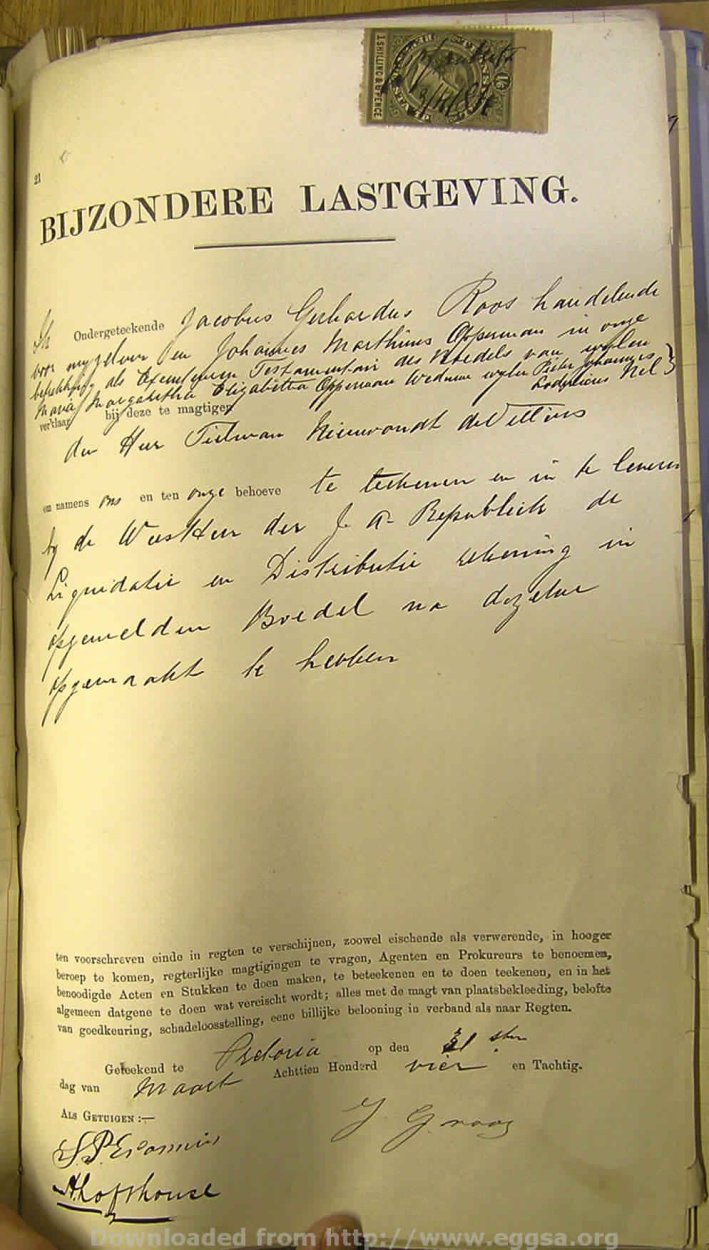 1 SHILLING & 6 PENCE
21
BIJZONDERE LASTGEVING.
Ik Ondergeteekende Jacobus Gerhardus Roos handelende
voor mijzelven en Johannes Marthinus Opperman in onze
betrekking als Executeuren Testamentair des Boedels van wylen
Maria Margaretha Elizabetha Opperman Weduwe wylen Pieter Johannes
Lodewicus Nel
verklaar bij deze te magtigen
den Heer Tielman Nieuwoudt de Villiers
om namens ons en ten onze behoeve te teekenen en in te leveren
by de WeesHeer der Z. A. Republiek de
Liquidatie en Distributie rekening in
opgemelden Boedel na dezelve
opgemaakt te hebben
ten voorschreven einde in regten te verschijnen, zoowel eischende als verwerende, in hooger
beroep te komen, regterlijke magtigingen te vragen, Agenten en Prokureurs te benoemen,
benoodigde Acten en Stukken te doen maken, te beteekenen en te doen teekenen, en in het
algemeen datgene te doen wat vereischt wordt; alles met de magt van plaatsbekleeding, belofte
van goedkeuring, schadeloosstelling, eene billijke belooning in verband als naar Regten.
Geteekend te Pretoria op den 31 sten
dag van Maart Achttien Honderd vier en Tachtig.
ALS GETUIGEN :—
J. G. roos
S. P. Erasmus
A. Lofthouse
Downloaded from http://www.eggsa.org